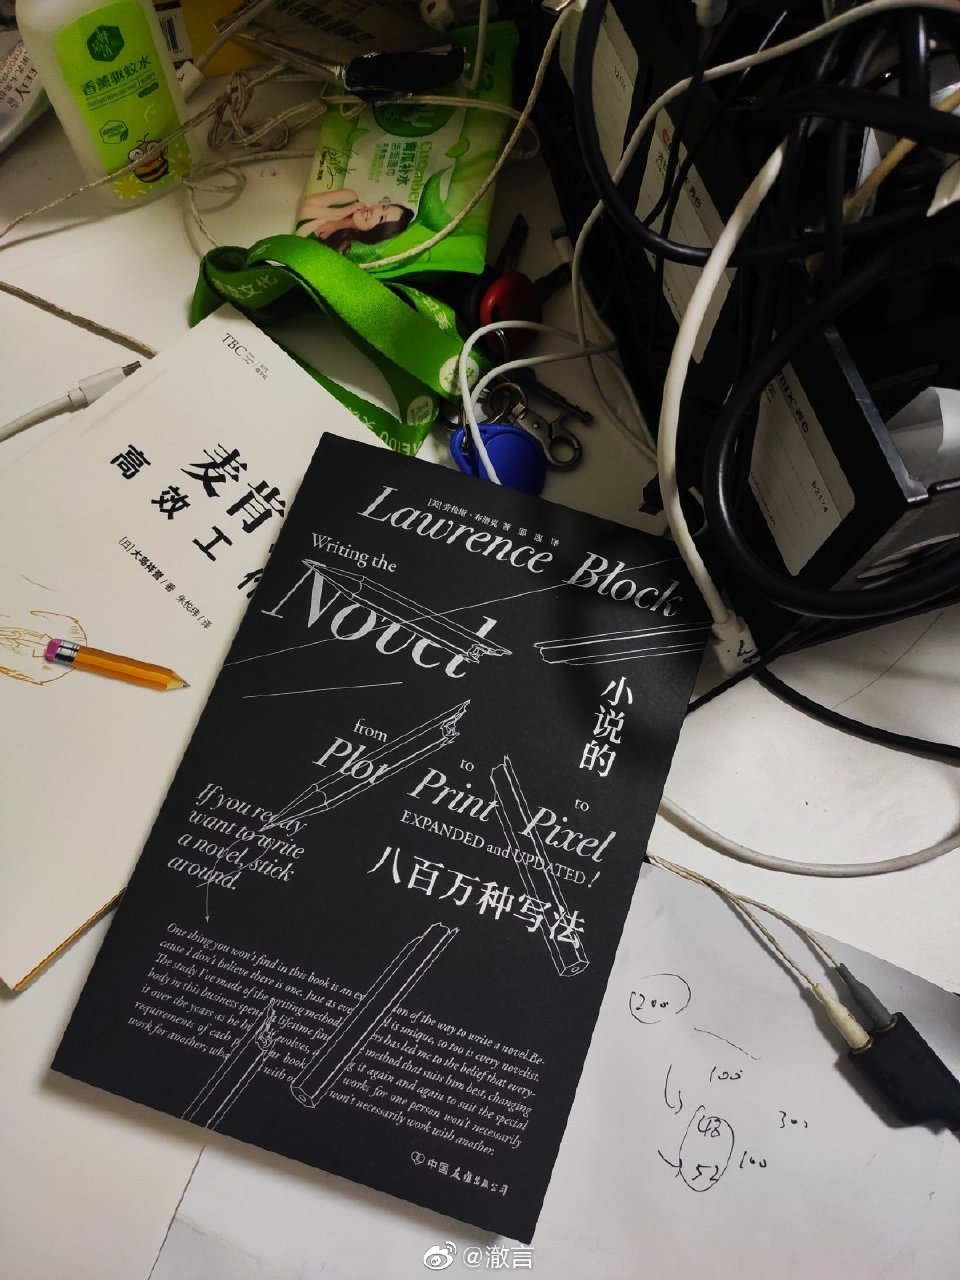 香薰驱蚊水
Cucumber
青瓜补水
洁面湿巾
文化
TBC
麦肯
高效工作
[日]大岛祥誉/著
朱悦玮/译
[美]劳伦斯·布洛克 著 邢逸 译
Lawrence Block
Writing the
Novel
小说的
from
Plot
to
Print
to
Pixel
EXPANDED and UPDATED!
八百万种写法
If you really
want to write
a novel, stick
around.
One thing you won't find in this book is an ex on of the way to write a novel. Be-
cause I don't believe there is one. Just as eve l is unique, so too is every novelist.
The study I've made of the writing method ers has led me to the belief that every-
body in this business spent a lifetime fin method that suits him best, changing
it over the years as he evolves, g it again and again to suit the special
requirements of each book works for one person won't necessarily
work for another; wha with o won't necessarily work with another.
中国友谊出版公司
b2174
200
100
48
52
100
300
@澈言